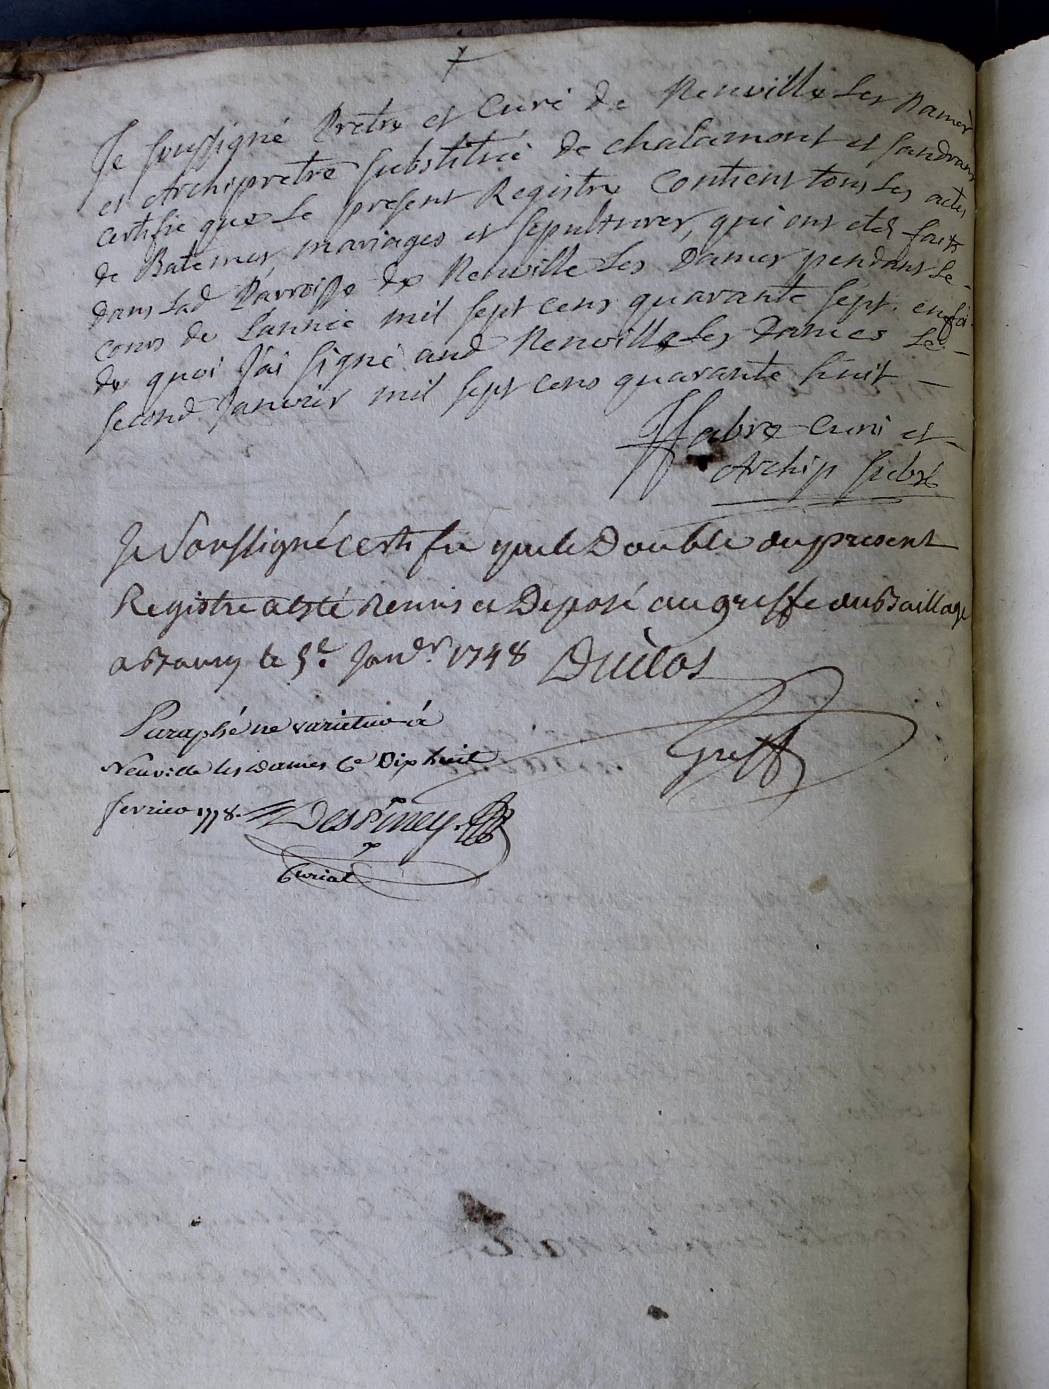 Je soussigné Prêtre et Curé de Neuville les Dames
et Archiprêtre substitué de chalamont et sandrans
certifie que le present Registre contient tous les actes
de Batemes mariages et sepultures, qui ont etés faits
dans lad Parroisse de Neuville les Dames pendant le
cours de l'année mil sept cens quarante sept. en foi
de quoi J'ai signé aud Neuville les Dames le
second Janvier mil sept cens quarante huit
Fabre Curé et
Archip subst
Je Soussigné certifie que le Double du present
Registre a esté Remis et Deposé au greffe du Baillage
a Bourg le 5e Janvr 1748 Duclos
Greff
Paraphé ne varietur à
Neuville les Dames ce Dix huit
fevrier 1778.
Curial